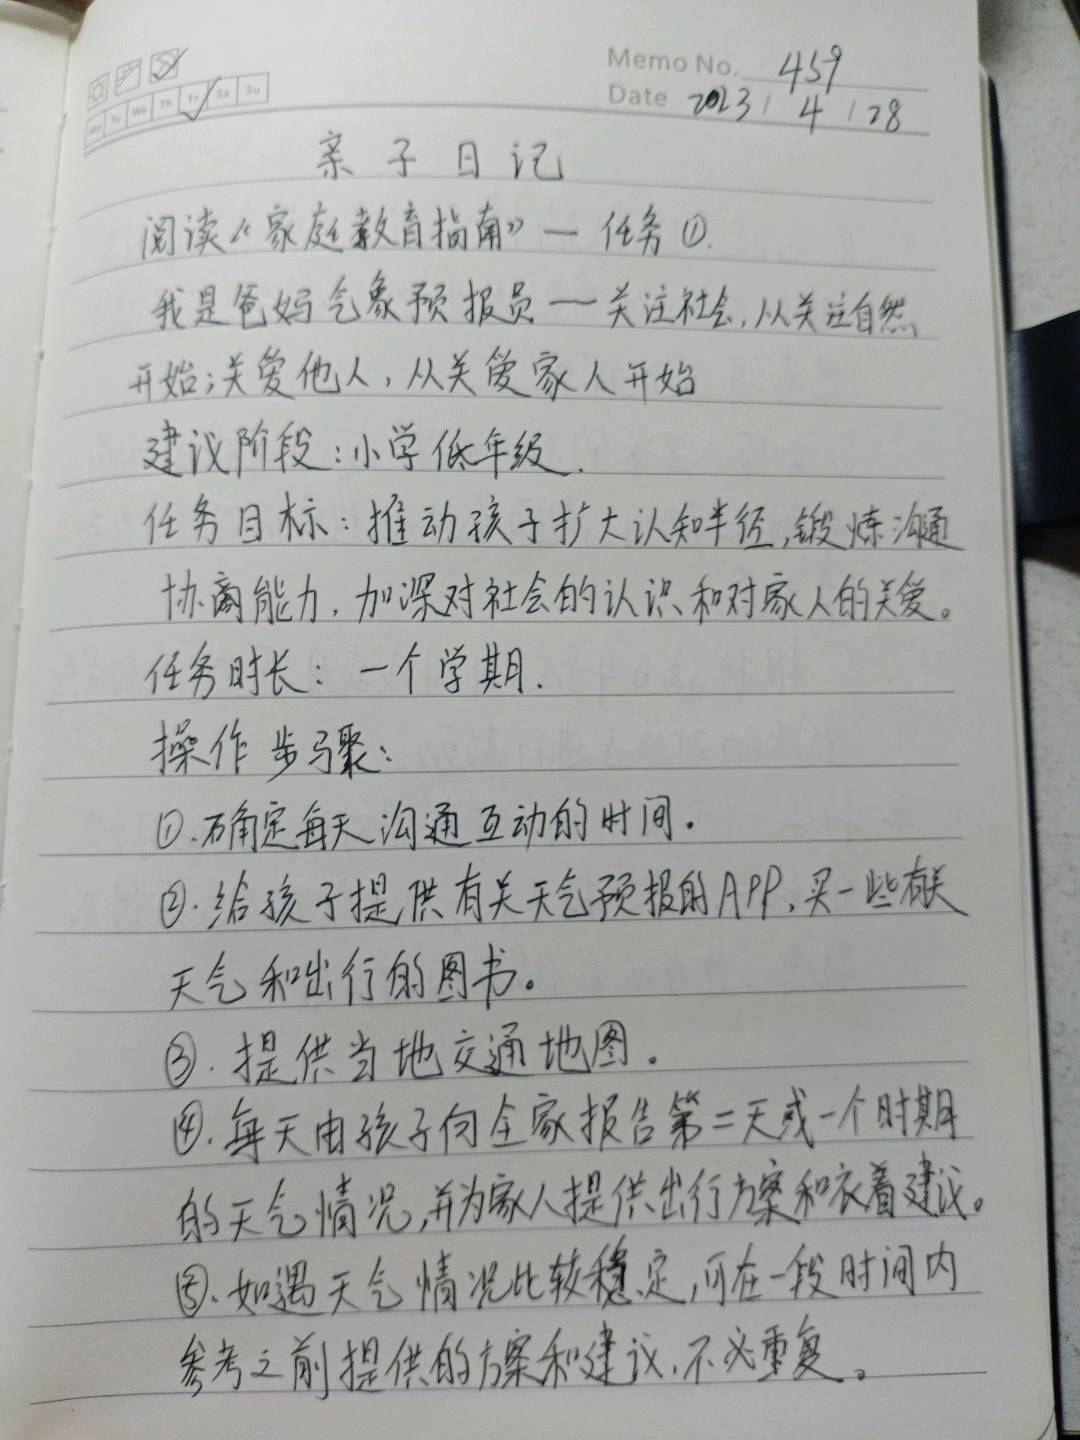 Memo No. 459
Mo Tu We Th Fr Sa Su
Date 2023 / 4 / 28
亲子日记
阅读《家庭教育指南》— 任务①.
我是爸妈气象预报员 — 关注社会,从关注自然
开始;关爱他人,从关爱家人开始
建议阶段:小学低年级.
任务目标:推动孩子扩大认知半径,锻炼沟通
协商能力,加深对社会的认识和对家人的关爱。
任务时长:一个学期.
操作步骤:
①.确定每天沟通互动的时间.
②.给孩子提供有关天气预报的APP,买一些有关
天气和出行的图书。
③.提供当地交通地图。
④.每天由孩子向全家报告第二天或一个时期
的天气情况,并为家人提供出行方案和衣着建议。
⑤.如遇天气情况比较稳定,可在一段时间内
参考之前提供的方案和建议,不必重复。